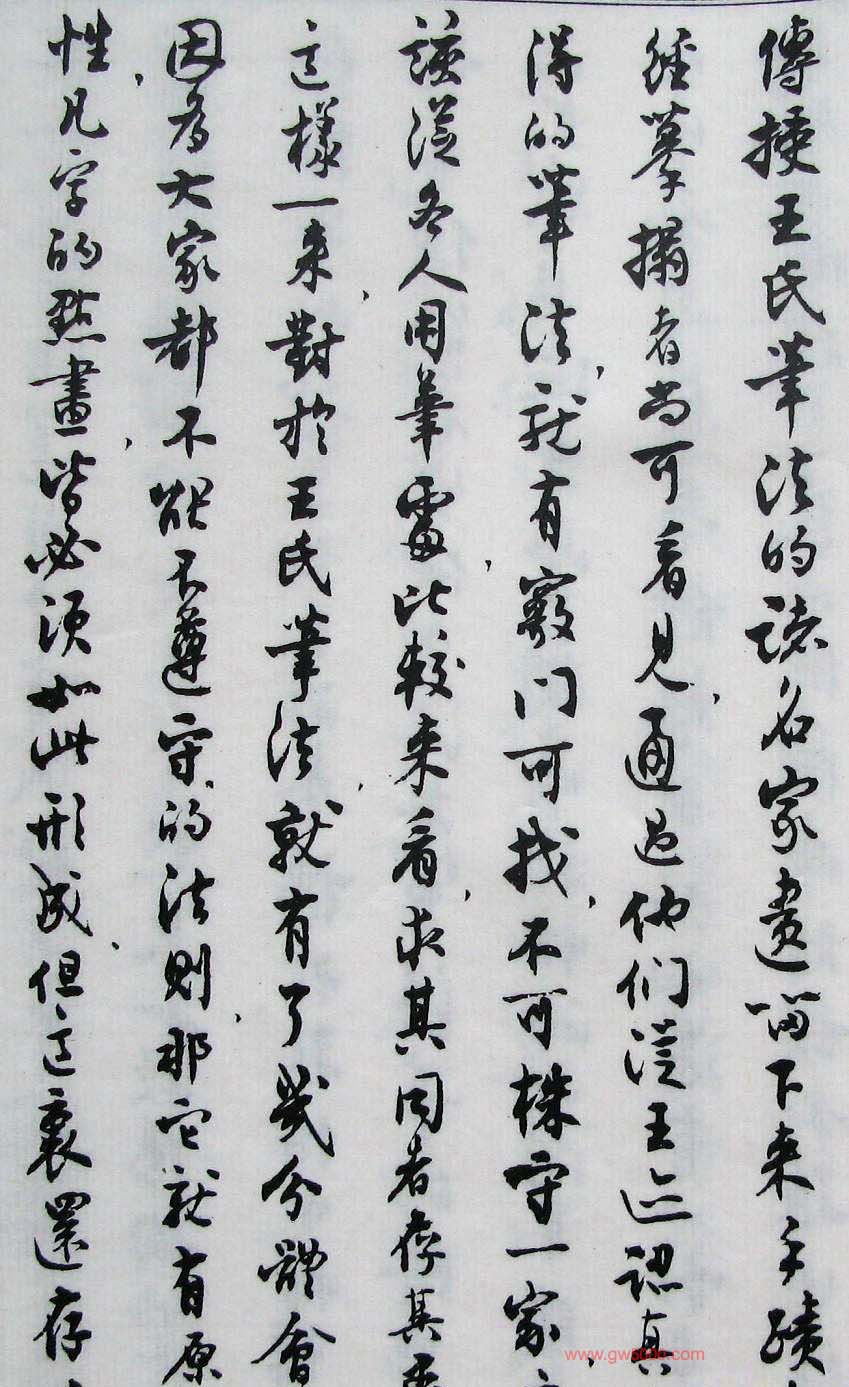 傳授王氏筆法的諸名家遺留下来手蹟
經摹搨者尚可看見，通过他们從王迹認真
得的筆法，就有竅门可找，不可株守一家
該從各人用筆處，比較来看，求其同者存其
這樣一来，對於王氏筆法，就有了幾分體會
因為大家都不能不遵守的法則，那它就有原
性，凡字的點畫，皆必須如此形成，但這裏還存
www.gw5000.com